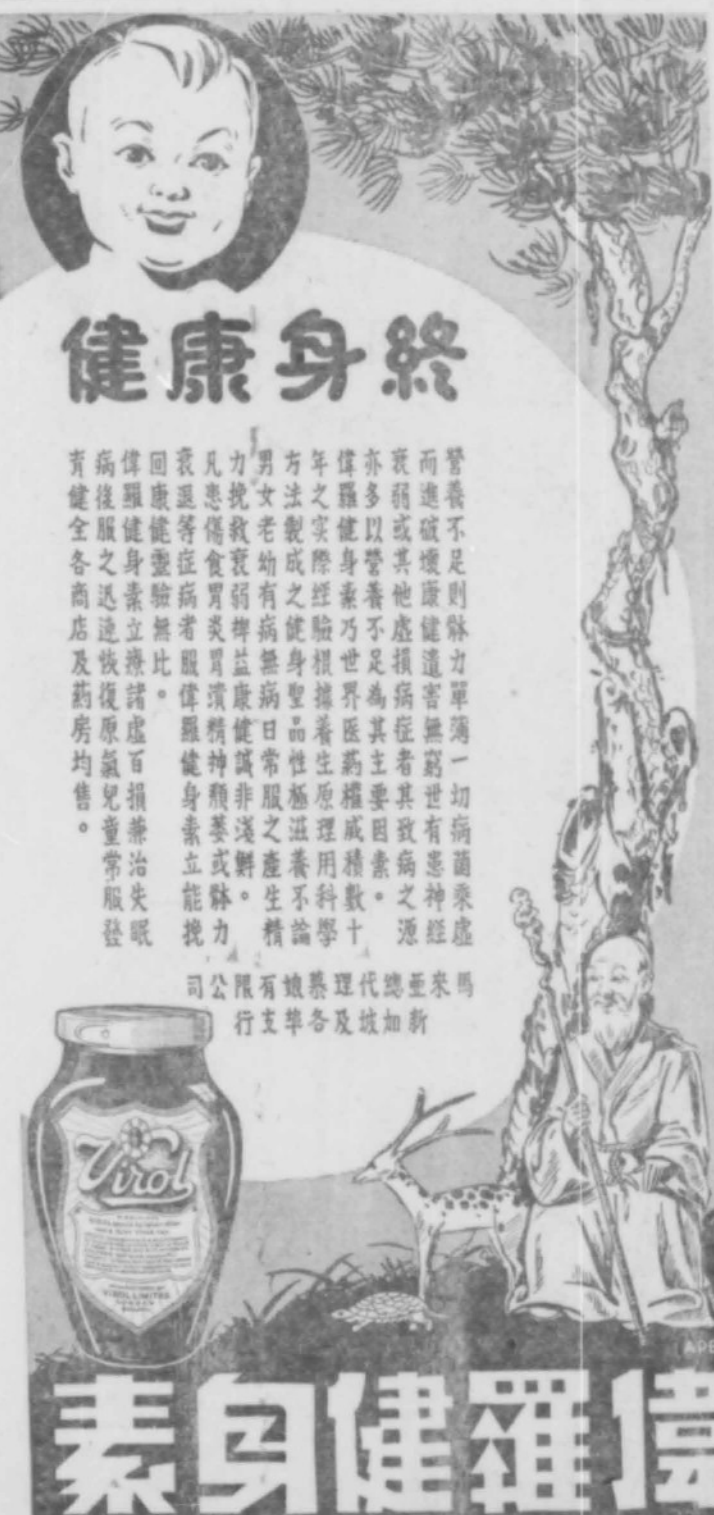 終身康健
營養不足則體力單薄一切病菌乘虛
而進破壞康健遺害無窮世有患神經
衰弱或其他虛損病症者其致病之源
亦多以營養不足為其主要因素。
偉羅健身素乃世界医药權威積數十
年之实際經驗根據養生原理用科學
方法製成之健身聖品性極滋養不論
男女老幼有病無病日常服之產生精
力挽救衰弱裨益康健誠非淺鮮。
凡患傷食胃炎胃潰精神頹萎或體力
衰退等症病者服偉羅健身素立能挽
回康健靈驗無比。
偉羅健身素立療諸虛百損兼治失眠
病後服之迅速恢復原氣兒童常服發
育健全各商店及药房均售。
馬來亚總代理慕娘有限公司
新加坡及各埠支行
Virol
VIROL LIMITED
偉羅健身素